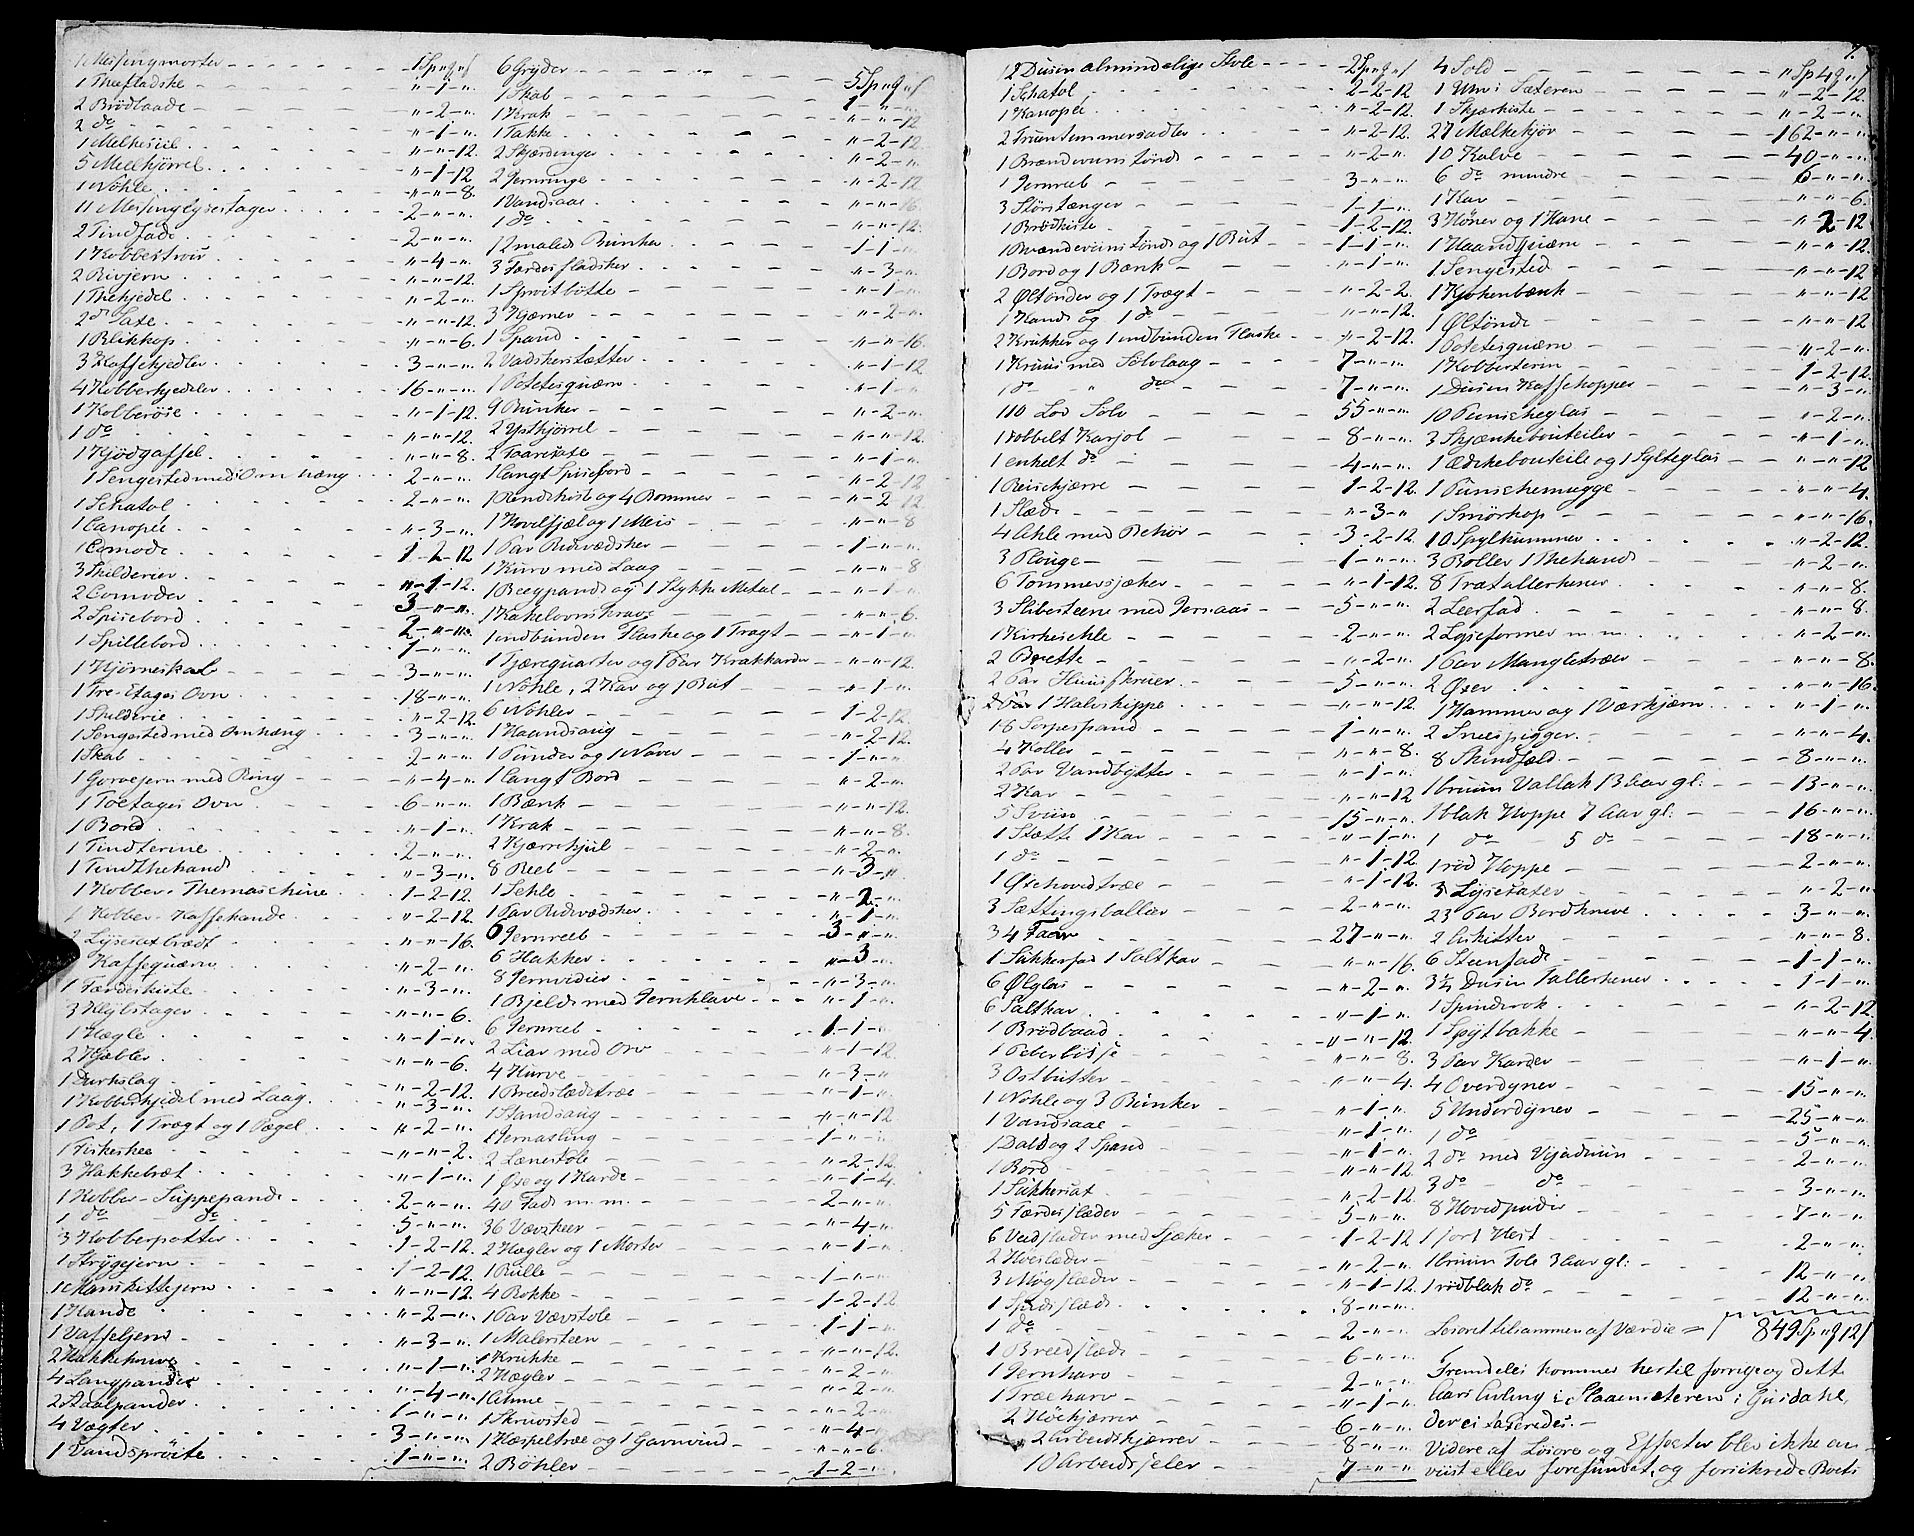 1 Messingmorter - - - 1 Sp " 9 " f
1 Theefladske - - - "-1-".
2 Brödbaade - - - "-2-".
2 do - - - "-1-".
1 Melkesiil - - - "-"-12.
5 Meelkjörrel - - - "-1-12
1 Nöhle - - - "-"-8.
11 Messinglysestager - - - 2-"-".
2 Tindfade - - - 2-"-".
2 Rivjern - - - "-"-12.
1 Theekjedel - - - "-2-".
1 Blikkop - - - "-"-6.
3 Kaffekjedler - - - 3-"-".
4 Kobberkjedeler - - - 16-"-".
1 Kobberöse - - - "-1-12.
1 do - - - "-"-12.
1 Kjödgaffel - - - "-"-8.
1 Sengested med Omhæng - - - 2-"-".
1 Schatol - - - 2-"-".
1 Canopee - - - "-3-".
1 Comode - - - 1-2-12
3 Skilderier - - - "-1-12.
2 Comoder - - - 3-"-".
2 Spisebord - - - 2-"-".
1 Spillebord - - - 1-"-".
1 Hjörneskab - - - 3-"-".
1 Tre-Etages Ovn - - - 18-"-".
1 Skilderie - - - "-2-12.
1 Sengested med Omhæng - - - 3-"-".
1 Skab - - - 2-"-".
1 Gorojern med Ring - - - "-4-".
1 Toetages Ovn - - - 6-"-".
1 Bord - - - "-1-".
1 Tindterine - - - 2-"-".
1 Tindthekand - - - "-3-".
1 Kobber-Themaschine - - - 1-2-12.
1 Kobber-Kaffekande - - - "-2-12.
2 Lysesaxbrædt - - - "-"-16.
1 Kaffequærn - - - "-2-".
1 Færdeskiste - - - "-3-".
3 Kleibstager - - - "-"-6.
1 Hægle - - - "-1-".
2 Kjæbler - - - "-"-6.
1 Durkslag - - - "-2-12.
1 Kobberkjedel med Laag - - - "-3-".
1 Pot, 1 Trægt og 1 Pægel - - - "-2-".
1 Fiskeskee - - - "-"-2.
3 Hakkebræt - - - "-1-".
1 Kobber-Suppepande - - - 2-"-".
1 do do - - - 5-"-".
3 Kobberpotter - - - 1-2-12.
1 Strygejern - - - 1-2-12.
1 Kande - - - "-2-".
1 Vaffeljern - - - "-3-".
2 Hakkeknive - - - "-1-".
4 Langpander - - - "-4-".
2 Staalpander - - - 1-"-".
4 Vægter - - - 3-"-".
1 Vandspröite - - - 1-"-".
6 Gryder - - - 5 Sp " 9 " f
1 Skab - - - 1-"-".
1 Krak - - - "-"-12
1 Takke - - - "-2-12
2 Skjærdinger - - - "-2-".
2 Jernringe - - - "-2-12
1 Vandsaae - - - "-"-16.
1 do - - - "-"-12.
12 malede Bunker - - - "-1-1-".
3 Færdesfladsker - - - "-3-".
1 Sproitbötte - - - "-1-".
3 Kjærner - - - "-2-".
1 Spand - - - "-"-16.
2 Vadskerstætter - - - "-1-12
1 Potetesquærn - - - "-1-".
9 Bunker - - - "-2-".
2 Ystkjörrel - - - "-"-12.
1 langt Spisebord - - - "-2-12
1 Rendekiste og 4 Bommer - - - "-2-12.
1 Kovelfjæl og 1 Meis - - - "-"-8
1 Par Ridvædsker - - - 1-"-".
1 Kurv med Laag - - - "-"-8
1 Beegpande og 1 Stykke Metal - - - "-1-".
1 Kakelovnskrave - - - "-"-6.
1 indbunden Flaske og 1 Tragt - - - "-1-".
1 Tjærequarter og 1 Par Krakkarder - - - "-"-12.
1 Nöhle, 2 Kar og 1 But - - - "-1-".
6 Nohler - - - 1-2-12.
1 Haandsaug - - - "-2-12.
1 Tönder og 1 Naver - - - 1-"-".
1 langt Bord - - - "-2-".
1 Bænk - - - "-"-12.
1 Krak - - - "-"-8.
2 Kjærrehjul - - - "-2-".
8 Reeb - - - "-3-".
1 Sehle - - - "-2-".
1 Par Ridvædsker - - - "-1-".
6 Jernreeb - - - 3-"-".
6 Hakker - - - "-3-".
8 Jernvidier - - - "-3-".
1 Bjelde med Jernklave - - - "-1-".
6 Jernreeb - - - 1-1-".
2 Liar med Orv - - - "-1-12.
4 Kurve - - - "-3-".
1 Breedslædetræ - - - "-1-".
1 Standsaug - - - "-"-12
1 Jernastling - - - 1-"-".
2 Lænestole - - - "-2-12.
1 Öse og 1 Karde - - - "-1-4.
40 Fade m. m. - - - 2-"-".
36 Vævskeer - - - "-4-".
2 Hægler og 1 Morter - - - "-1-".
1 Rulle - - - 1-"-".
4 Rokke - - - 1-2-12
1 Par Vævstole - - - 1-1-".
1 Malersteen - - - "-"-12.
1 Krukke - - - "-2-".
2 Hægler - - - "-2-".
1 Skruvsted - - - "-4-".
1 Hæspeltræ og 1 Garnvind - - - "-"-6.
2 Böhler - - - 1-2-".
1/2 Dusin almindelige Stole - - - 2 Sp " 9 " f
1 Schatol - - - 2-2-12
1 Kanopee - - - "-2-12.
2 Fruentimmersadler - - - "-2-12.
1 Brændeviinstönde - - - "-2-".
1 Jernreeb - - - 3-"-".
3 Störstænger - - - 1-1-".
1 Brödkiste - - - 1-2-12.
1 Brændeviinstönde og 1 But - - - 1-1-".
1 Bord og 1 Bænk - - - "-1-".
2 Öltönder og 1 Trægt - - - "-2-2.
1 Kande og 1 do - - - "-"-12.
2 Krukker og 1 indbunden Flaske - - - "-2-12.
1 Kruus med Sölvlaag - - - 7-"-".
1 do " do - - - 7-"-".
110 Lod Sölv - - - 55-"-".
1 dobbelt Karjol - - - 8-"-".
1 enkelt do - - - 4-"-".
1 Reisekjærre - - - 1-2-12.
1 Slæde - - - "-3-"
4 Ahle med Behör - - - 3-2-12.
3 Plouge - - - 1-"-".
6 Tommersjæker - - - "-1-12.
3 Slibesteene med Jernaas - - - 5-"-".
1 Kirkesehle - - - 2-"-".
2 Brette - - - "-2-".
2 Par Huusskruer - - - 5-"-".
1 Halvskippe - - - "-"-12
16 Sorpespand - - - 1-"-".
4 Koller - - - "-"-8.
2 Par Vandbytter - - - "-1-".
2 Kar - - - "-"-12
5 Sviin - - - 15-"-".
1 Stætte 1 Kar - - - "-1-".
1 do - - - "-1-12.
1 Öxehovedtræe - - - "-1-12.
3 Sættingsballier - - - 2-"-".
34 Faar - - - 27-"-".
1 Sukkerfad 1 Saltkar - - - "-"-16.
6 Ölglas - - - "-2-".
6 Saltkar - - - "-1-".
1 Brödbaad - - - "-"-12.
1 Peberbösse - - - "-"-8.
3 Ostbutter - - - "-"-4.
1 Nohle og 3 Bunker - - - "-1-".
1 Vandsaae - - - "-1-".
1 Dald og 2 Spand - - - "-1-".
1 Bord - - - "-"-12
1 Sukkersax - - - "-2-12
5 Færdesslæder - - - 5-"-".
6 Veedslæder med Sjæker - - - 1-2-12
2 Höeslæder - - - "-2-".
3 Mögslæder - - - "-1-12.
1 Spidsslæde - - - 8-"-".
1 do - - - 2-"-".
1 Breedslæde - - - 6-"-".
1 Jernharv - - - 2-"-".
1 Træharv - - - "-1-".
2 Höekjærrer - - - 6-"-".
2 Arbeidskjærrer - - - 8-"-".
10 Arbeidsseler - - - 7-"-".
7.
4 Sold - - - " Sp 4 9 " f
1 Uhr i Sæteren - - - "-2-12.
1 Skjækiste - - - "-2-".
27 Melkekjör - - - 162-"-".
10 Kalve - - - 40-"-".
6 do mindre - - - 6-"-".
1 Kar - - - "-"-6.
3 Höner og 1 Hane - - - " 2-12
1 Haandquærn - - - "-"-12.
1 Sengested - - - "-"-12
1 Kjökenbænk - - - "-"-12
1 Öltönde - - - "-"-12
1 Potetesquærn - - - "-2-".
1 Kobberterin - - - 1-2-12.
1 Dusin Kaffekopper - - - "-3-".
10 Punscheglas - - - "-2-".
3 Skjænkebouteiler - - - "-1-".
1 Ædikebouteile og 1 Sylteglas - - - "-"-12
1 Punschemugge - - - "-"-4.
1 Smörkop - - - "-"-16.
10 Spylkummer - - - "-2-12.
3 Boller 1 Thekande - - - "-2-".
8 Trætallerkener - - - "-"-8.
2 Leerfad - - - "-"-8.
2 Lyseformer m.m. - - - "-2-".
1 Par Mangletræer - - - "-"-8.
2 Öxer - - - "-"-16.
1 Hammer og 1 Værkjærn - - - "-1-".
2 Sneespigger - - - "-"-4.
8 Skindfæld - - - 8-"-".
1 bruun Vallak 13 Aar gl: - - - 13-"-".
1 blak Hoppe 7 Aar gl: - - - 16-"-".
1 do - 5 do - - - 18-"-".
1 röd Hoppe - - - 2-"-".
3 Lysesaxer - - - "-2-".
23 Par Bordknive - - - 3-"-".
2 Asketter - - - "-"-8.
6 Steenfade - - - 1-1-".
3 1/2 Dusin Tallerkener - - - 1-1-".
1 Spinderok - - - "-2-12
1 Spÿtbakke - - - "-"-4.
3 Par Karder - - - "-1-".
4 Overdyner - - - 15-"-".
5 Underdÿner - - - 25-"-".
1 do - - - 5-"-".
2 do med Vyaduun - - - 2-"-".
3 do do - - - 3-"-".
8 Hovedpuder - - - 7-"-".
1 sort Hest - - - 2-"-".
1 bruun Fole 3 Aar gl: - - - 12-"-".
1 rödblak do - - - 12-"-".
Lösöret tilsammen af Værdie = 849 Sp " 9 12 f
Fremdeles kommer hertil forrige og dette
Aars Avling i Slaaensæteren i Gusdahl,
der ei taxeredes. -
Videre af Lösöre og Effecter blev ikke an-
viist eller forefundet, og forsikrede Boets